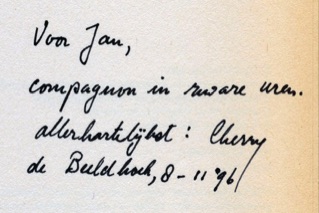 Voor Jan,
compagnon in zware uren.
allerhartelijkst: Cherry
de Beeldhoek, 8-11 '96